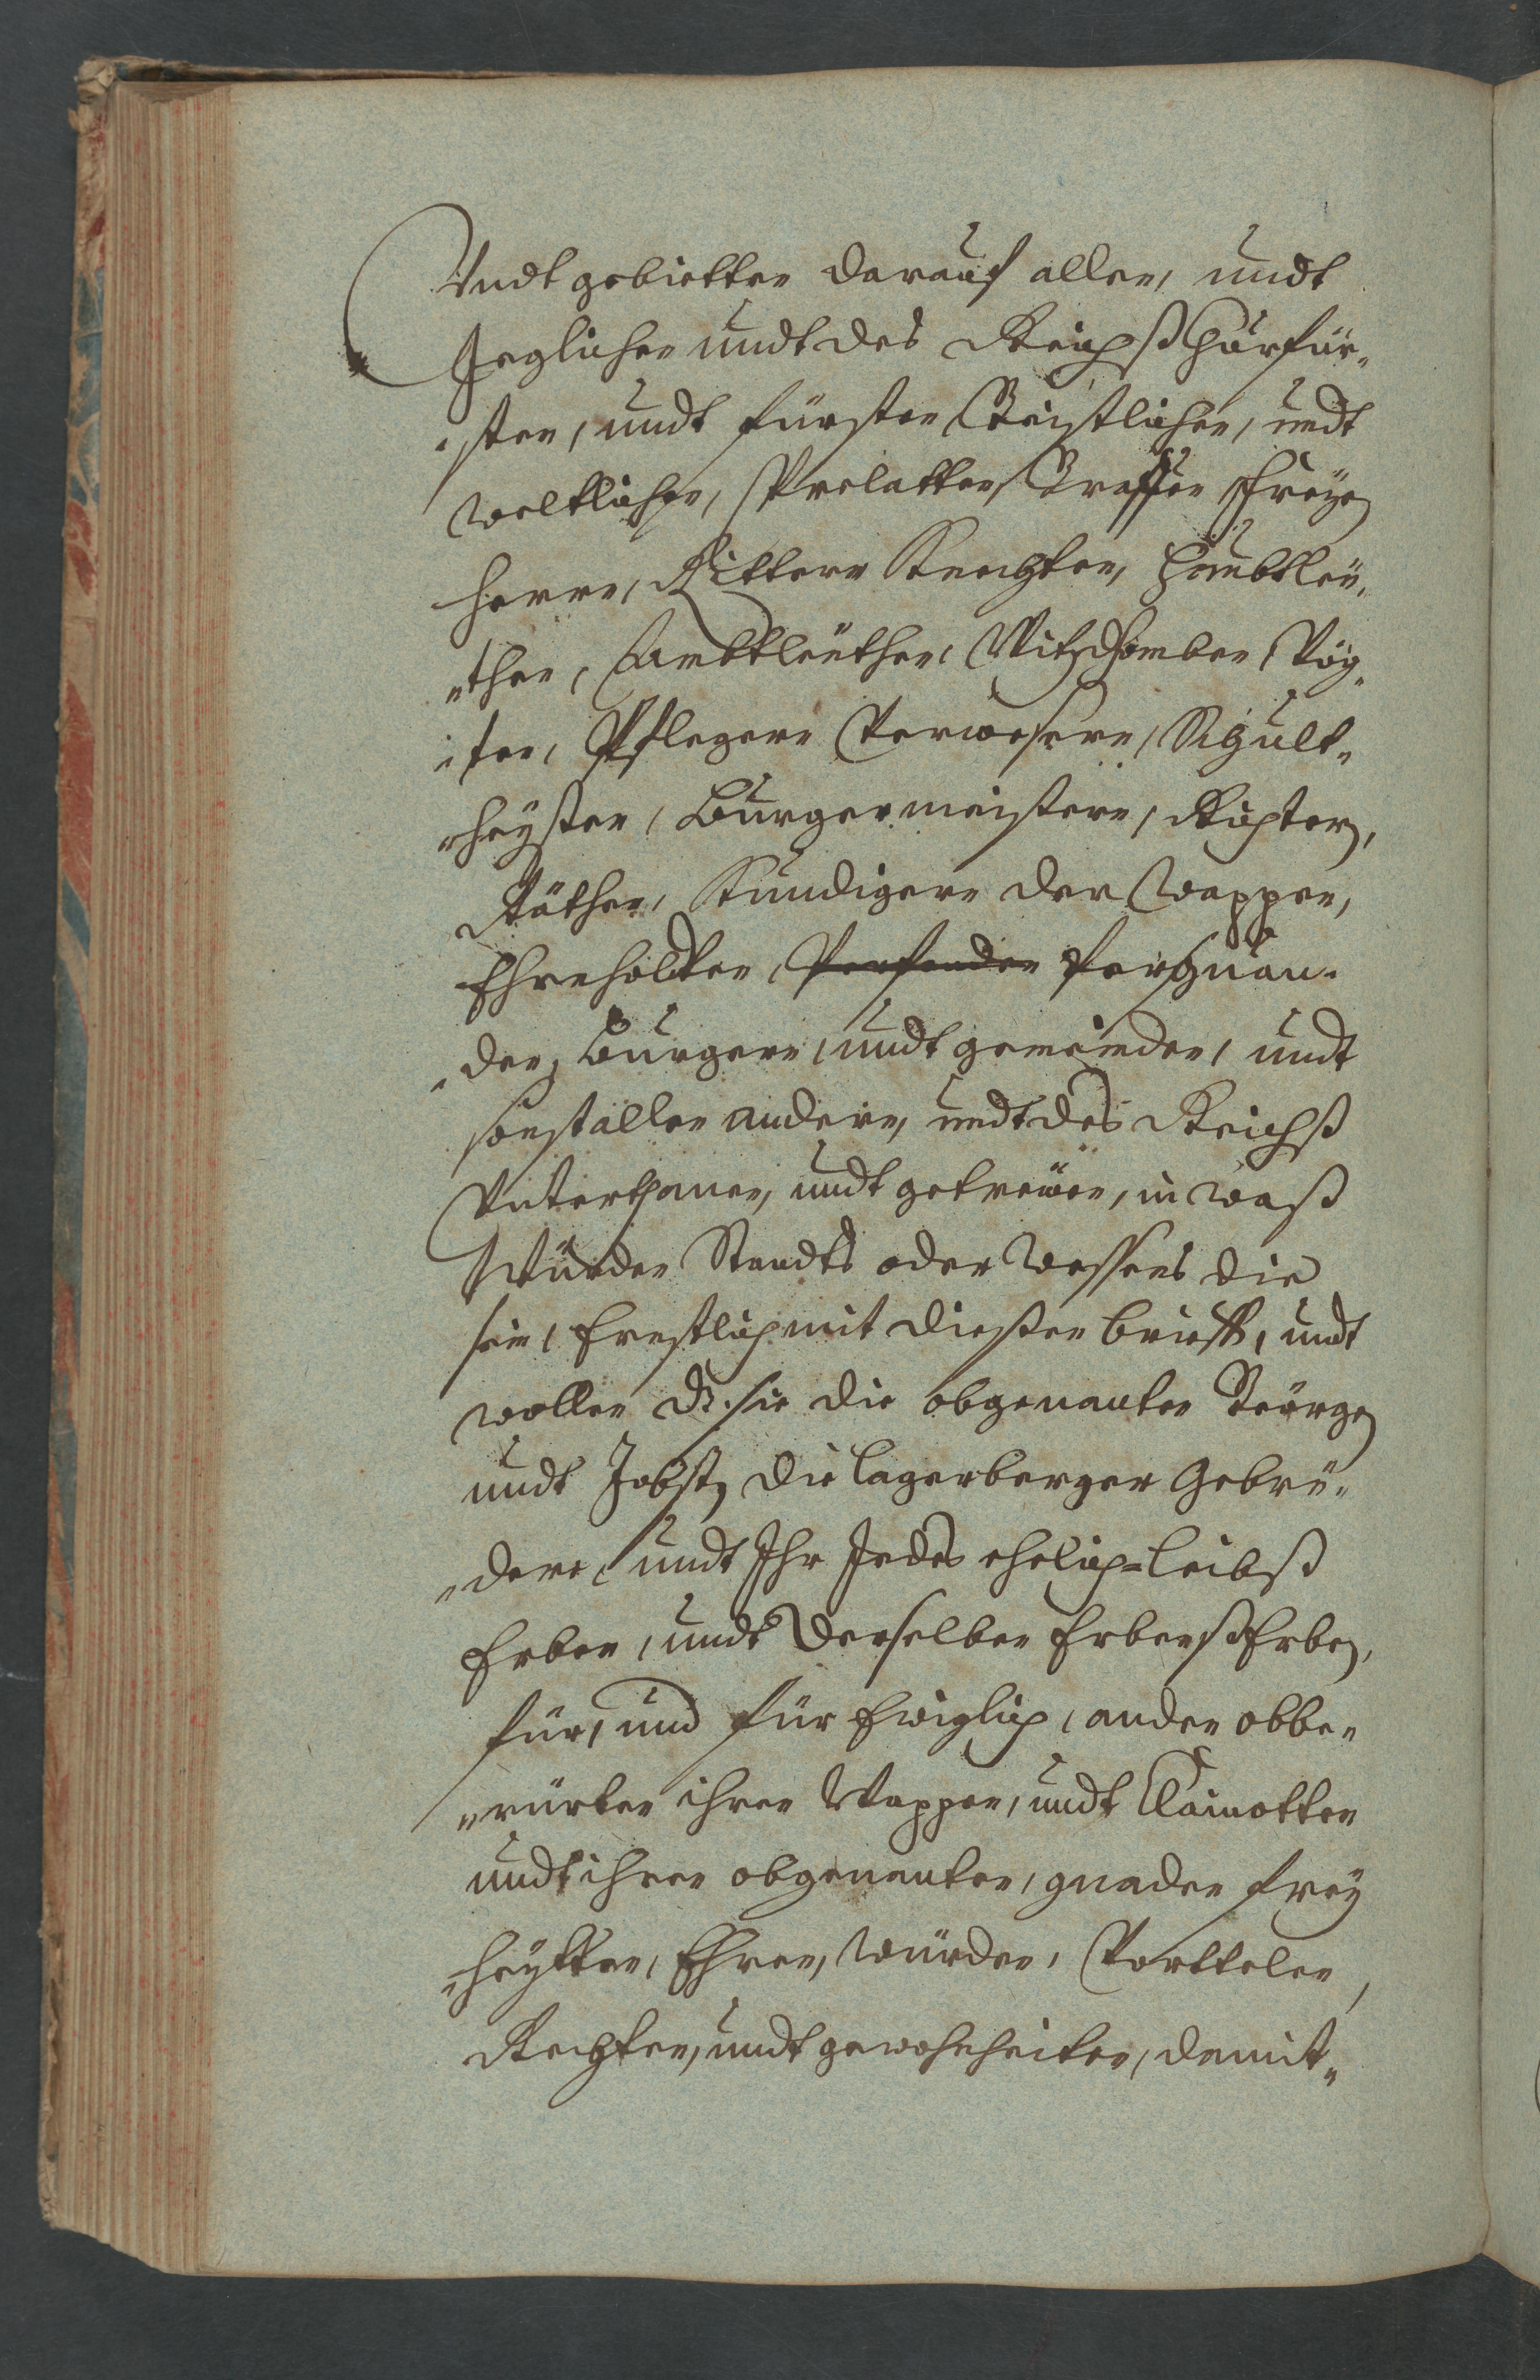 Vndt gebietten darauf allen, undt
Jeglichen undt des Reichß Churfür„
„sten, undt fürsten Geistlichen, undt
weltlichen, Prelatten Graffen Freyen
herrn, Rittern Knechten, Haubtleü„
„then, Ambtleüthen, Vitzdhomben, Vög„
„ten, Pflegern Verwesern, Schult„
„heysten, Burgermeistern, Richtern,
Räthen, Kundigern der Wappen,
Ehrnholdten, Persevan„
„den, Burgern, undt gemeinden, undt
sonst allen andern, undt des Reichß
Vnterthanen, undt getrewen, in waß
Würden Standts oder Wessens die
sein, Ernstlich mit diesen brieff, undt
wollen dz. sie die obgenanten Geörgen
undt Jobst, die Lagerberger Gebrü„
„dere, undt Ihr Jedes ehelich=leibß
Erben, undt derselben Erbenß Erben,
für, und für Ewiglich, an den obbe„
„rürten ihren Wappen, undt Clainotten
undt ihren obgenanten, gnaden frey
„heytten, Ehren, würden, Vorttelen,
Rechten, undt gewohnheiten, damit„